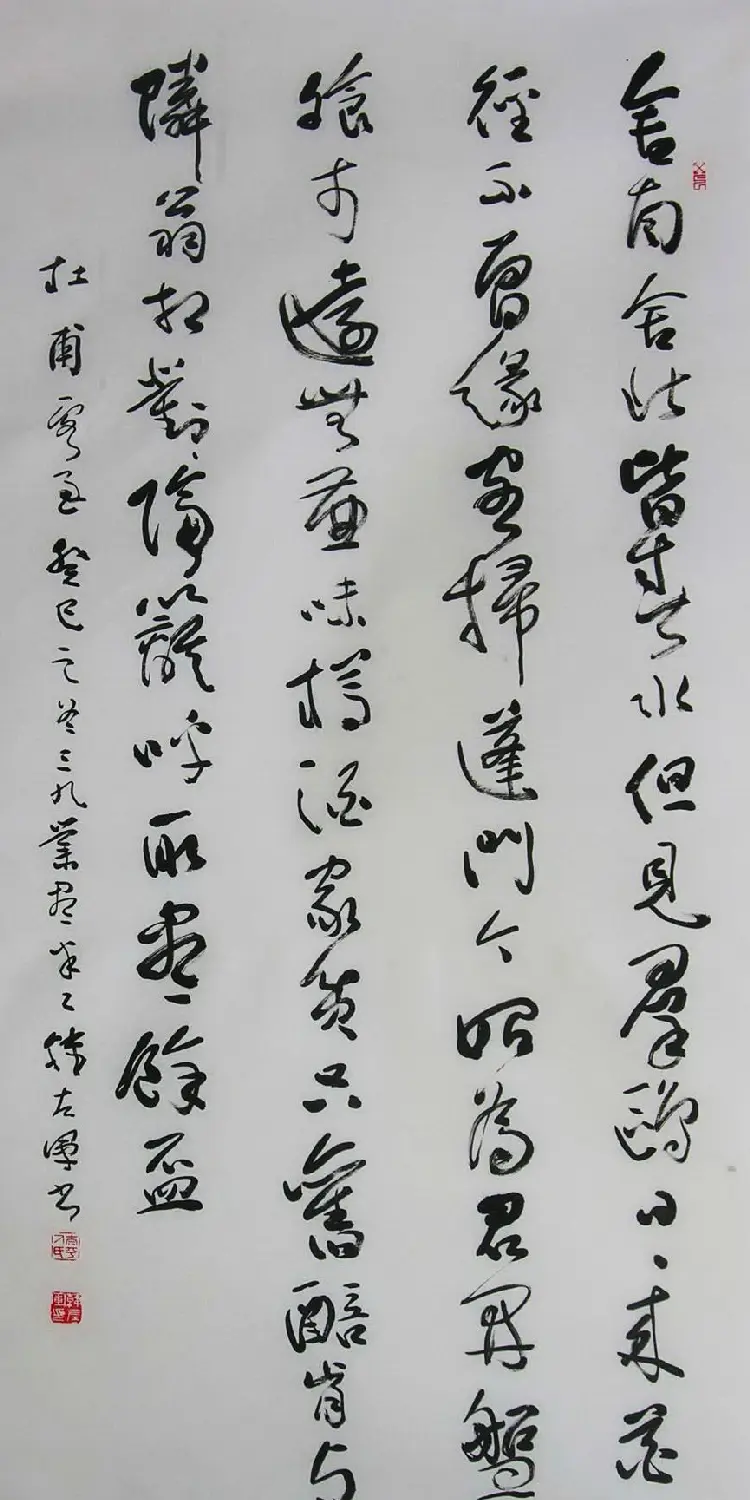 舍南舍北皆春水但見羣鷗日丶來花
徑不曾緣客掃蓬門今始為君開盤
飱市遠無兼味樽酒家貧只舊醅肯与
隣翁相對隔籬呼取盡餘盃
杜甫客至癸巳之冬三九左軍书